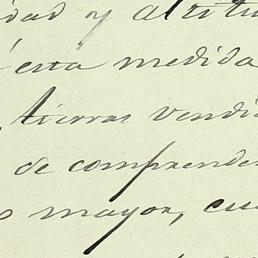 dad y altitu
esta medida
tierras vendi
de comprende
mayor, cu